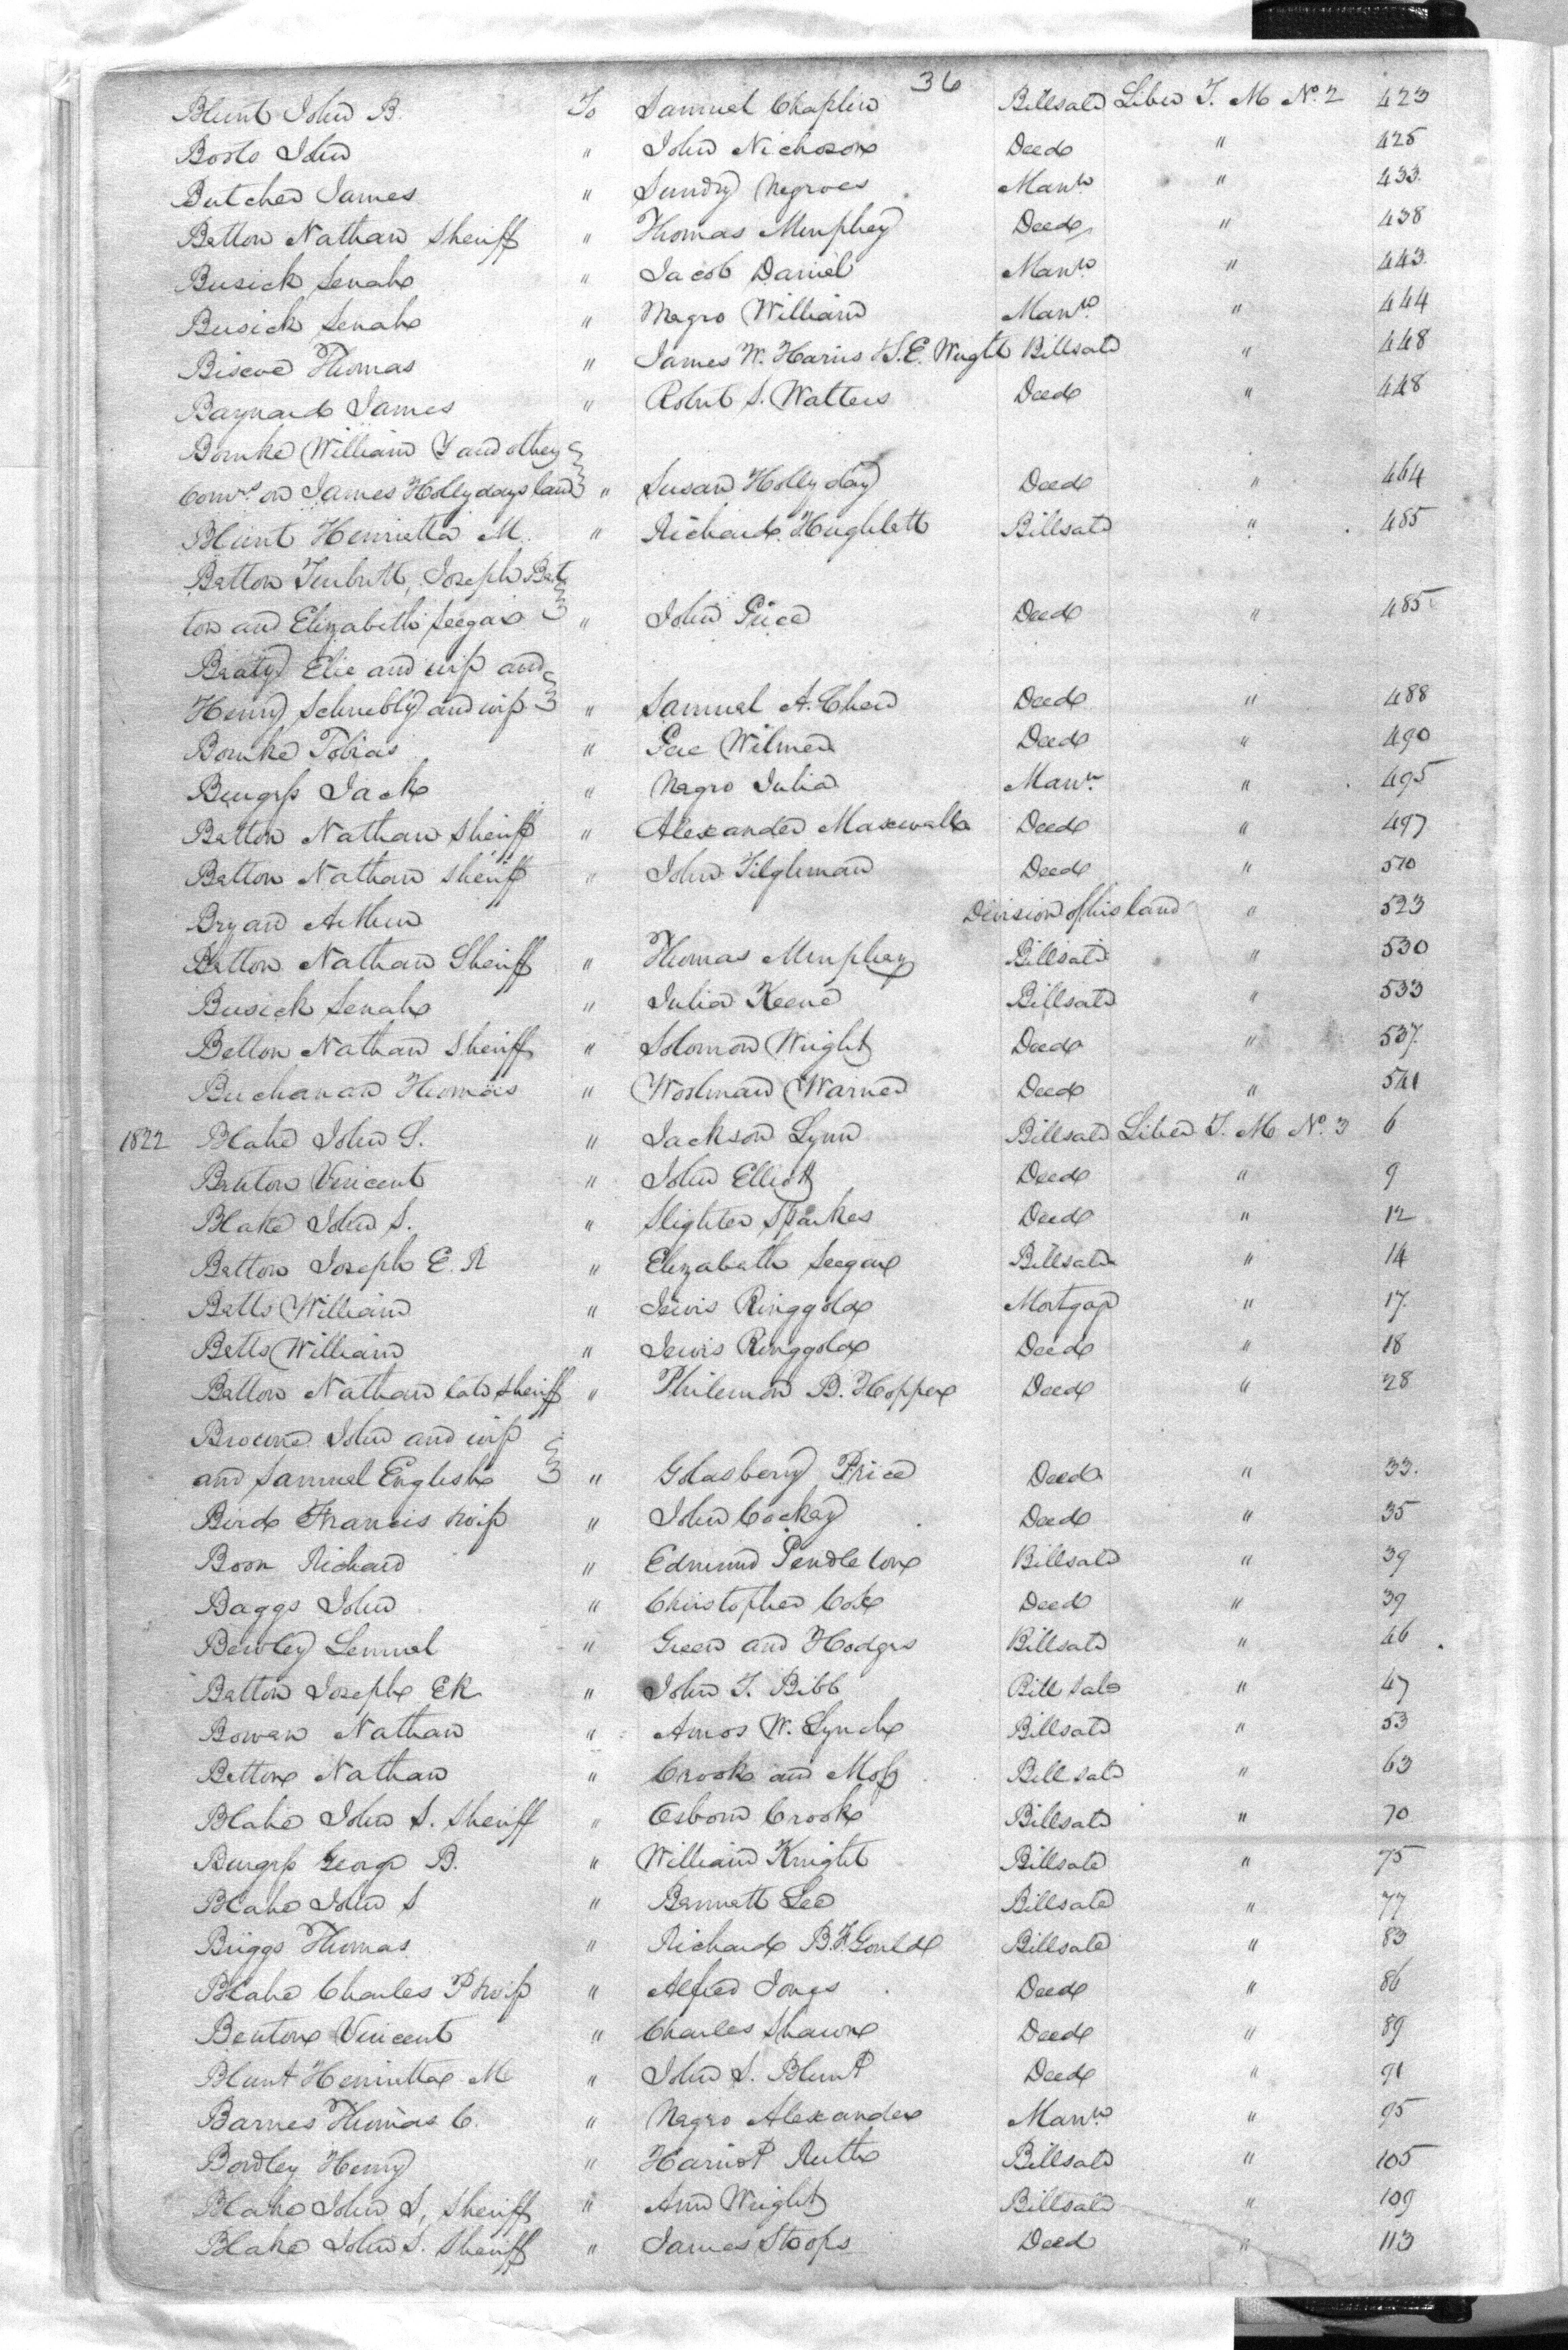 36
Blunt John B. To Samuel Chaplin Billsale Liber T. M No. 2 423
Boots John " John Nichoson Deed " 425
Butcher James " Sundry Negroes Manu " 433
Betton Nathan Sheriff " Thomas Murphey Deed " 438
Busick Senah " Jacob Daniel Manu " 443
Busick Senah " Negro William Manu " 444
Biscoe Thomas " James W. Harris & S. E. Wright Billsale " 448
Baynard James " Robert S. Watters Deed " 448
Bourke William Y and others
Comrs. on James Hollydays land " Susan Hollyday Deed " 464
Blunt Henrietta M. " Richard Hughlett Billsale " 485
Betton Turbutt, Joseph Bet
ton and Elizabeth Seegar " John Price Deed " 485
Beaty Elie and wife and
Henry Schnebly and wife " Samuel A. Chew Deed " 488
Bourke Tobias " Pere Wilmer Deed " 490
Burgess Jack " Negro Julia Manu " 495
Betton Nathan Sheriff " Alexander Maxwell Deed " 497
Betton Nathan Sheriff " John Tilghman Deed " 510
Bryan Arthur Division of his land " 523
Betton Nathan Sheriff " Thomas Murphey Billsale " 530
Busick Senah " Julia Keene Billsale " 533
Betton Nathan Sheriff " Solomon Wright Deed " 537
Buchanan Thomas " Woolman Warner Deed " 541
1822 Blake John S. " Jackson Lynn Billsale Liber T. M No. 3 6
Benton Vincent " John Elliott Deed " 9
Blake John S. " Slighter Sparkes Deed " 12
Betton Joseph E. R " Elizabeth Seegar Billsale " 14
Betts William " Lewis Ringgold Mortgage " 17
Betts William " Lewis Ringgold Deed " 18
Betton Nathan late Sheriff " Philemon B. Hopper Deed " 28
Browne John and wife
and Samuel English " Goldsberry Price Deed " 33
Bird Francis & wife " John Cockey Deed " 35
Boon Richard " Edmund Pendleton Billsale " 39
Baggs John " Christopher Cox Deed " 39
Bewley Lemuel " Green and Hodges Billsale " 46
Betton Joseph E R " John T. Bibb Bill sale " 47
Bowen Nathan " Amos W. Lynch Billsale " 53
Betton Nathan " Crook and Moss Bill sale " 63
Blake John S. Sheriff " Osborn Crook Billsale " 70
Burgess George B. " William Knight Billsale " 75
Blake John S " Bennett Lee Billsale " 77
Briggs Thomas " Richard B. F. Gould Billsale " 83
Blake Charles P & wife " Alfred Jones Deed " 86
Benton Vincent " Charles Shawn Deed " 89
Blunt Henrietta M " John S. Blunt Deed " 91
Barnes Thomas C. " Negro Alexander Manu " 95
Bordley Henry " Harriot Ruth Billsale " 105
Blake John S, Sheriff " Ann Wright Billsale " 109
Blake John S. Sheriff " James Stoops Deed " 113